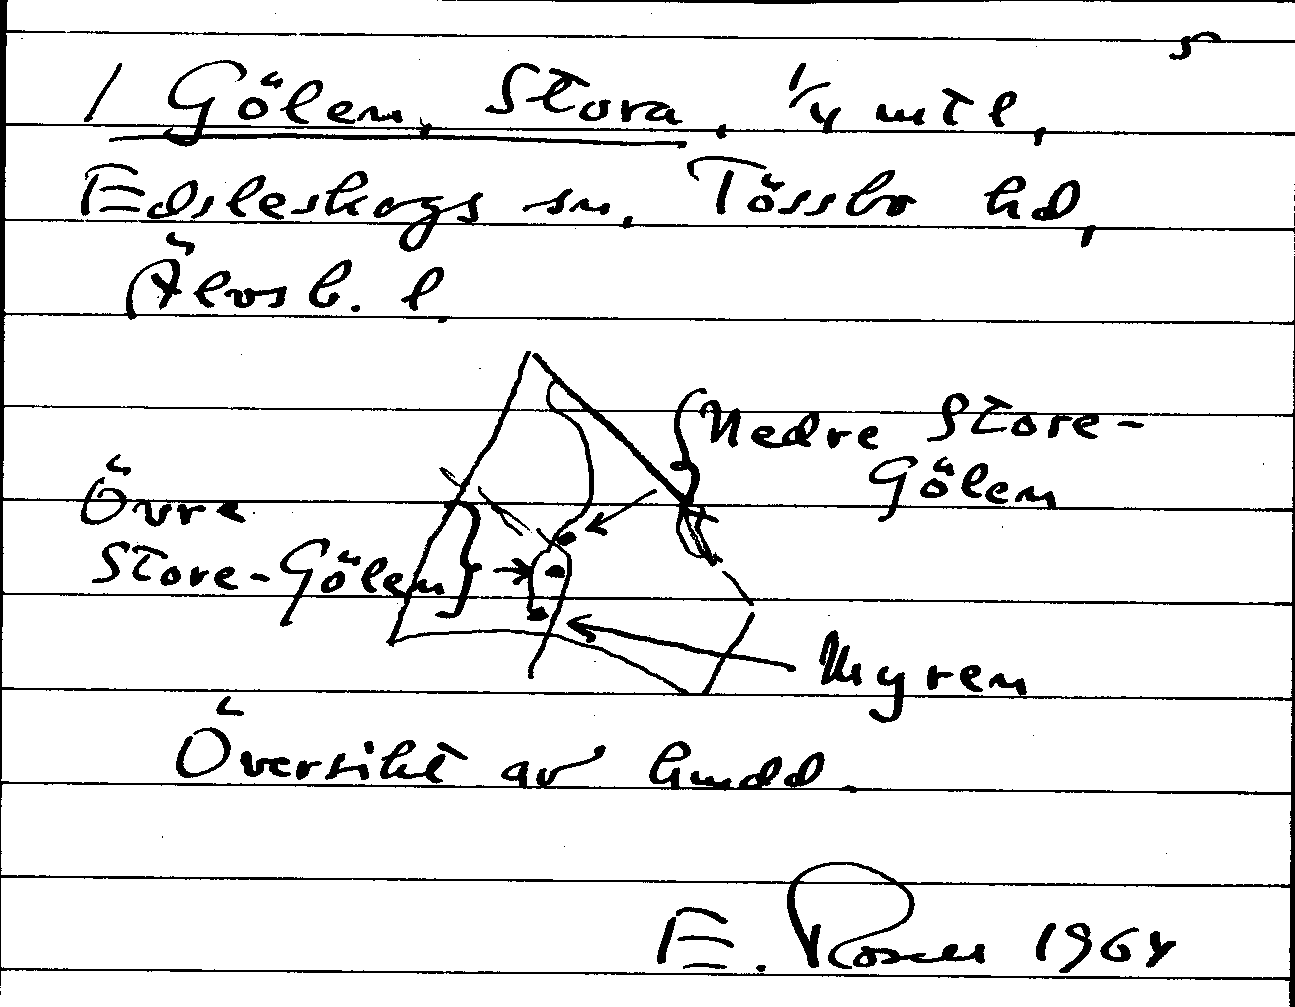 5
1 Gölen, Stora, 1/4 mtl,
Edsleskogs sn, Tössbo hd,
Älvsb. l.
Nedre Store-
Gölen
Övre
Store-Gölen
Myren
Översikt av
E. 1964